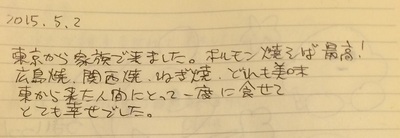 2015.5.2
東京から家族で来ました。ホルモン焼そば最高!
広島焼、関西焼、ねぎ焼、どれも美味
東から来た人間にとって一度に食せて
とても幸せでした。